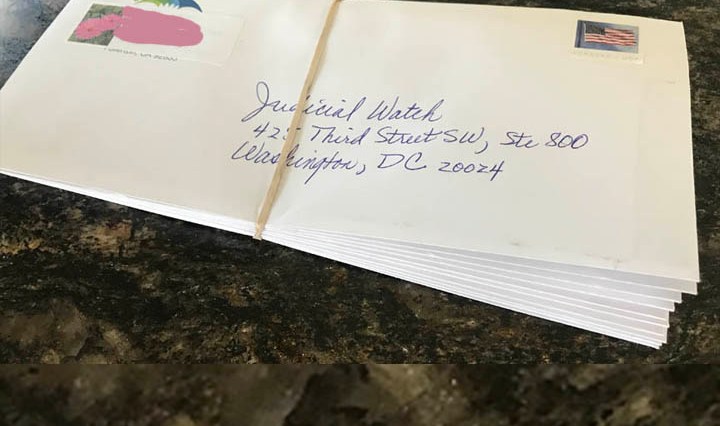 Judicial Watch
425 Third Street SW, Ste 800
Washington, DC 20024